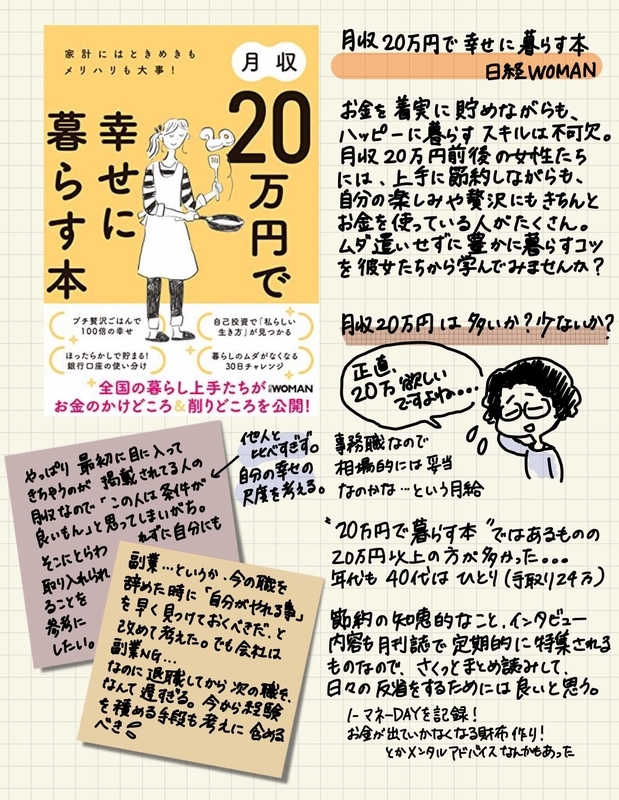 家計にはときめきも
メリハリも大事！
月収
20万円で
幸せに
暮らす本
プチ贅沢ごはんで
100倍の幸せ
自己投資で「私らしい
生き方」が見つかる
ほったらかしで貯まる！
銀行口座の使い分け
暮らしのムダがなくなる
30日チャレンジ
全国の暮らし上手たちが
日経WOMAN
お金のかけどころ&削りどころを公開！
月収20万円で幸せに暮らす本
日経WOMAN
お金を着実に貯めながらも、
ハッピーに暮らすスキルは不可欠。
月収20万円前後の女性たち
には、上手に節約しながらも、
自分の楽しみや贅沢にもきちんと
お金を使っている人がたくさん。
ムダ遣いせずに豊かに暮らすコツ
を彼女たちから学んでみませんか？
月収20万円は多いか？少ないか？
正直、
20万欲しい
ですよね・・・
事務職なので
相場的には妥当
なのかな…という月給
他人と
比べすぎず。
自分の幸せの
尺度を考える。
やっぱり最初に目に入って
きちゃうのが掲載されてる人の
月収なので「この人は条件が
良いもん」と思ってしまいがち。
そこにとらわれずに自分にも
取り入れられ
ることを
参考に
したい。
副業…というか・今の職を
辞めた時に「自分がやれる事」
を早く見つけておくべきだ、と
改めて考えた。でも会社は
副業NG…
なのに退職してから次の職を、
なんて遅すぎる。今から経験
を積める手段も考えに含める
べき
"20万円で暮らす本"ではあるものの
20万円以上の方が多かった・・・
年代も40代はひとり(手取り24万)
節約の知恵的なこと、インタビュー
内容も月刊誌で定期的に特集される
ものなので、さくっとまとめ読みして、
日々の反省をするためには良いと思う。
ノーマネーDAYを記録！
お金が出ていかなくなる財布作り！
とかメンタルアドバイスなんかもあった